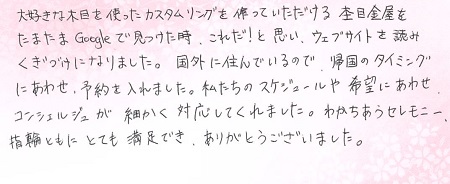 大好きな木目を使ったカスタムリングを作っていただける 杢目金屋を
たまたま Googleで見つけた時、これだ!と思い、ウェブサイトを読み
くぎづけになりました。国外に住んでいるので、帰国のタイミング
にあわせ、予約を入れました。私たちのスケジュールや希望にあわせ、
コンシェルジュが 細かく 対応してくれました。わかちあうセレモニー、
指輪ともに とても 満足でき、ありがとうございました。